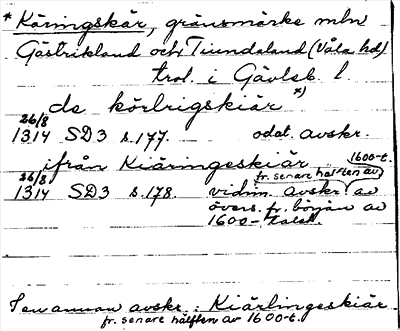 * Käringskär, gränsmärke mln
Gästrikland och Tiundaland (Våla hd)
trol. i Gävleb. l.
de körlrigskiär *)
26/8
1314 SD3 s.177. odat. avskr.
ifrån Kiäringeskiär 1600-t.
26/8 fr. senare hälften av
1314 SD3 s.178. vidim. avskr. av
övers. fr. början av
1600-talet.
I en annan avskr.: Kiärlingeskiär
fr. senare hälften av 1600-t.